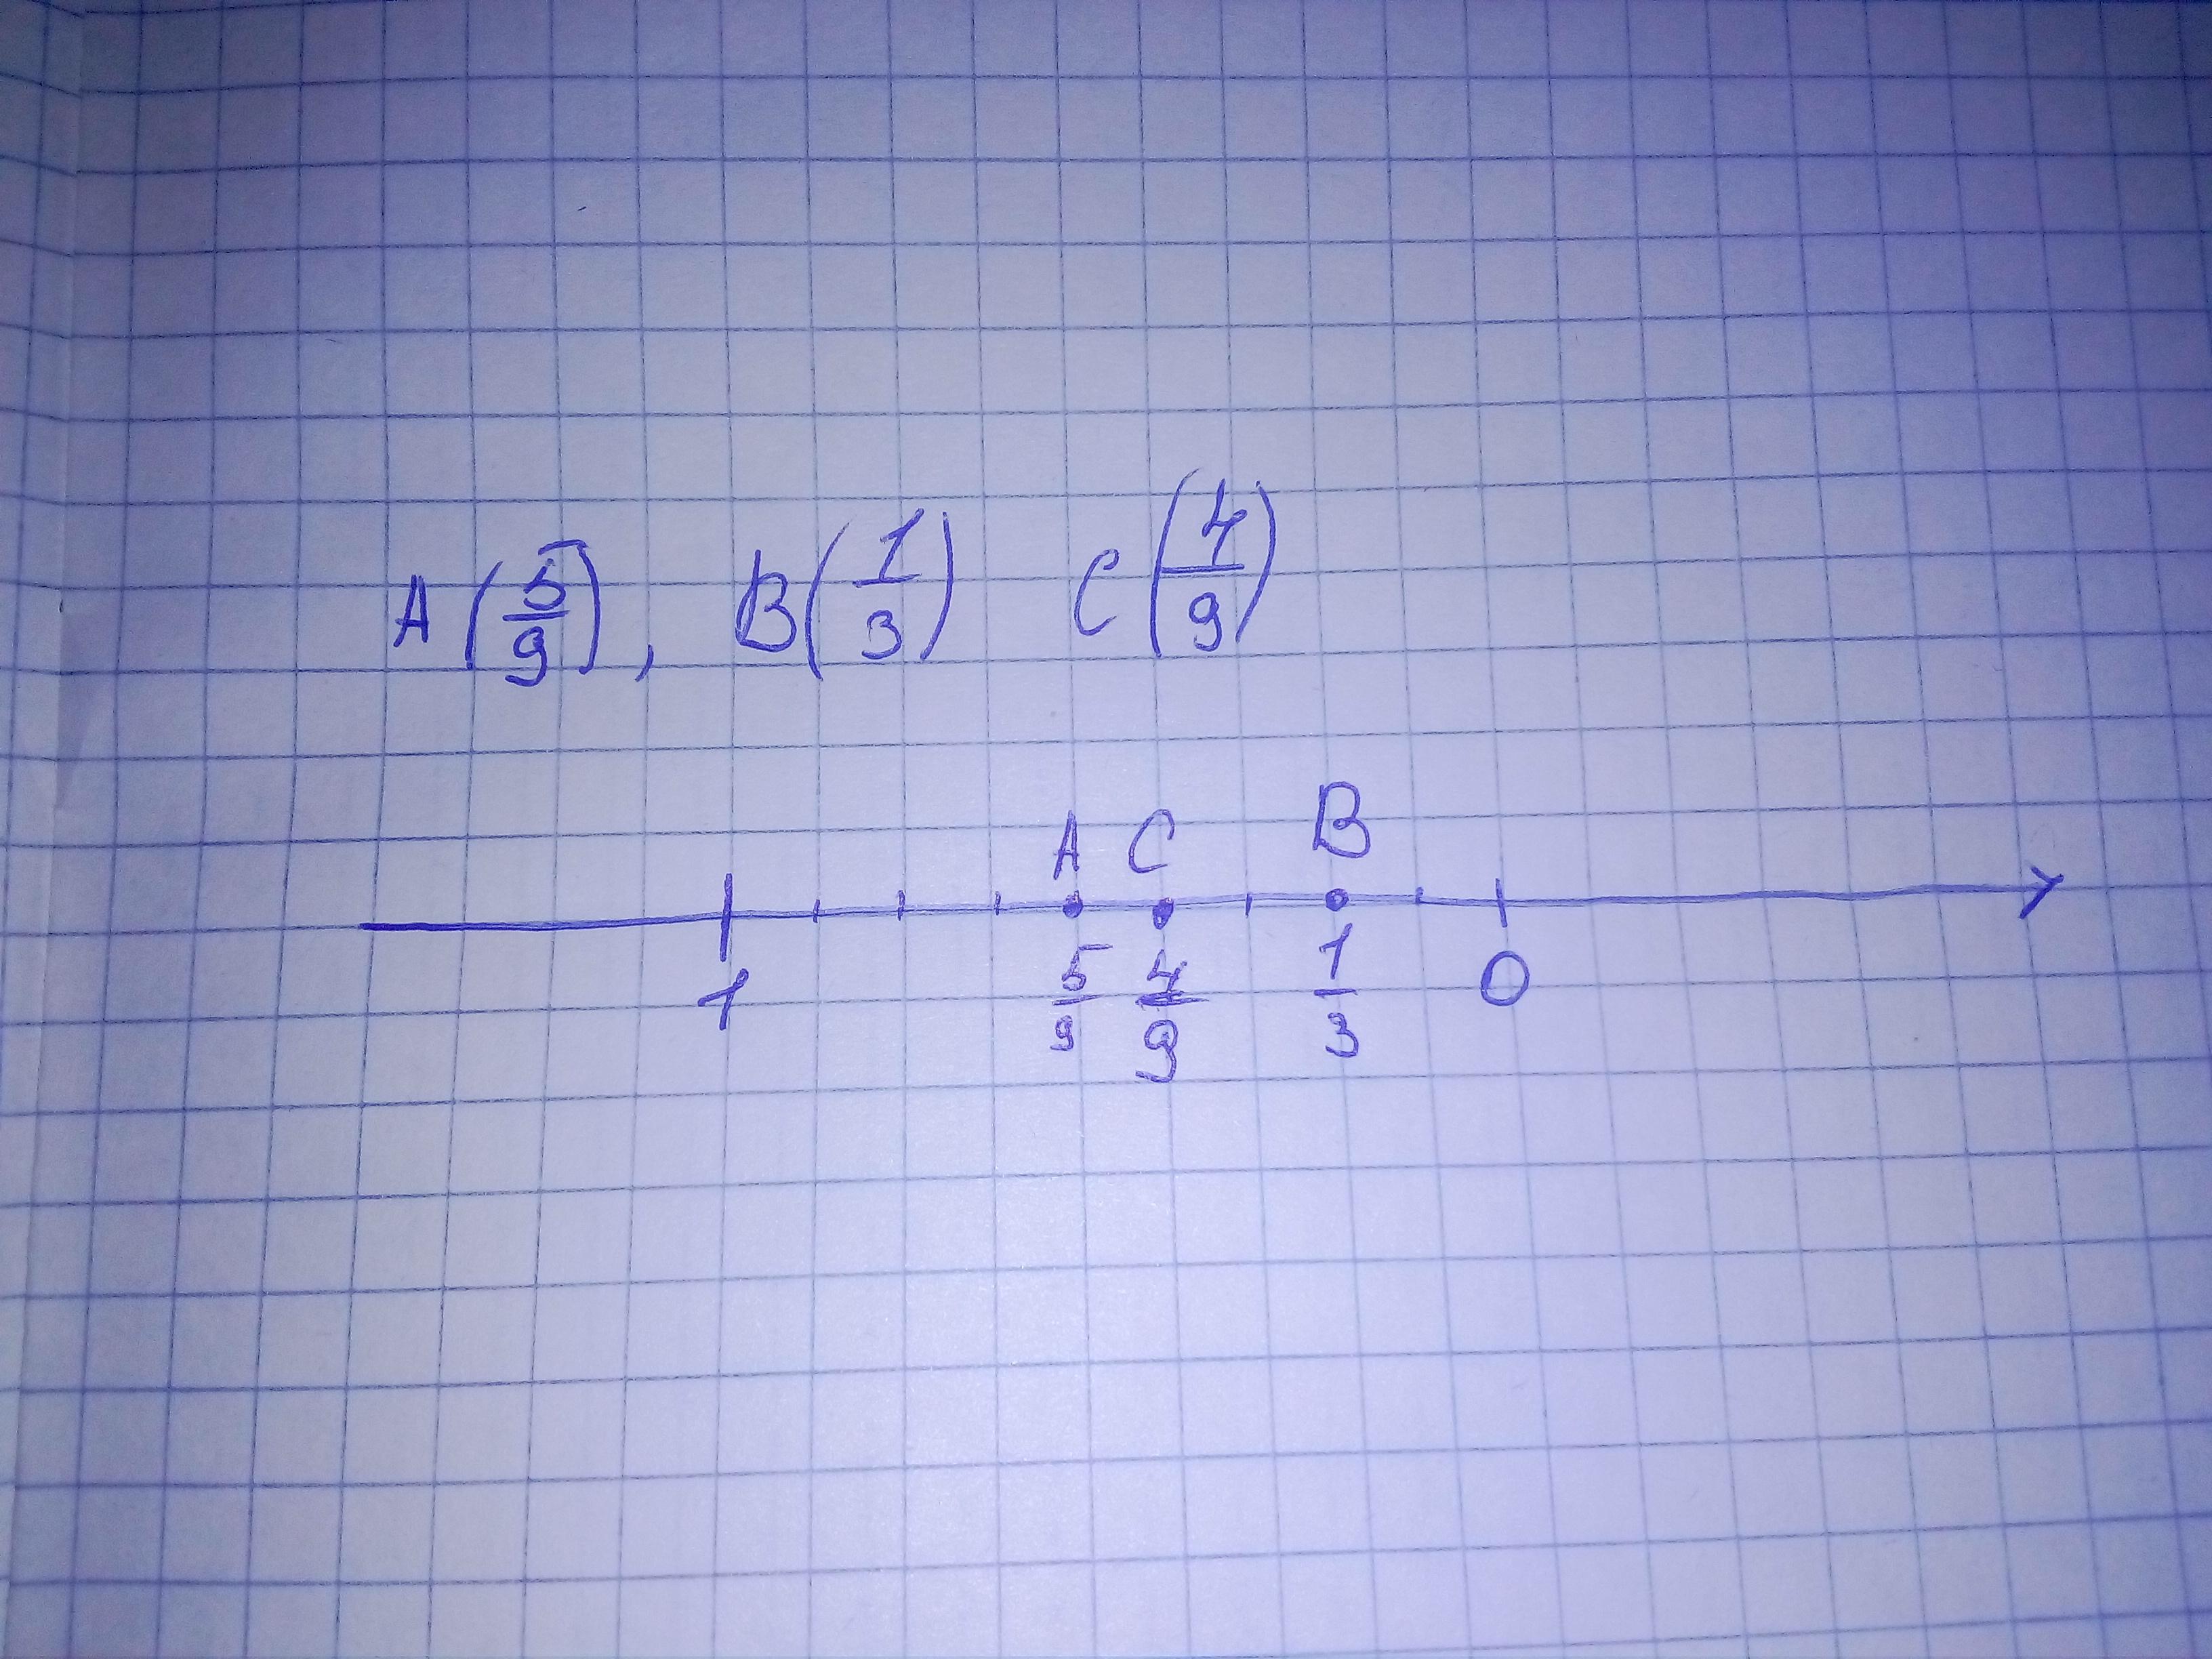 A(5/9), B(1/3) C(4/9)
A C B
1 5/9 4/9 1/3 0